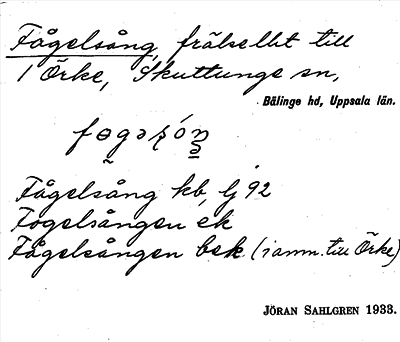 Fågelsång, frälselht till
1 Örke, Skuttunge sn,
Bälinge hd, Uppsala län.
Fågelsång kb, lj 92
Fogelsången ek
Fågelsången bek. (i anm. till Örke)
JÖRAN SAHLGREN 1933.